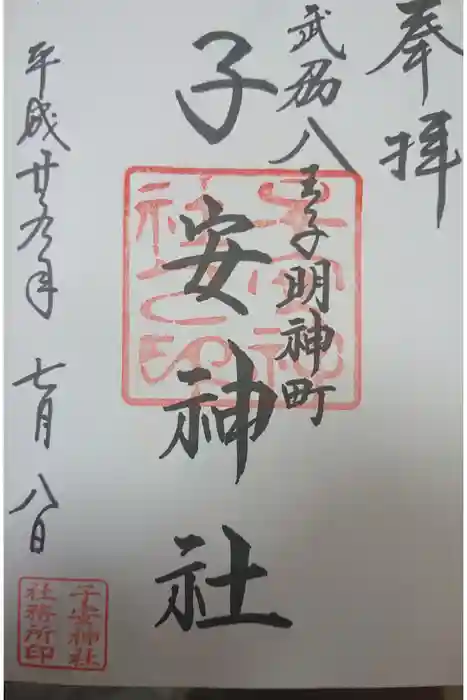 奉拝
武州八王子明神町
子安神社
平成廿九年七月八日
子安神社
社務所印